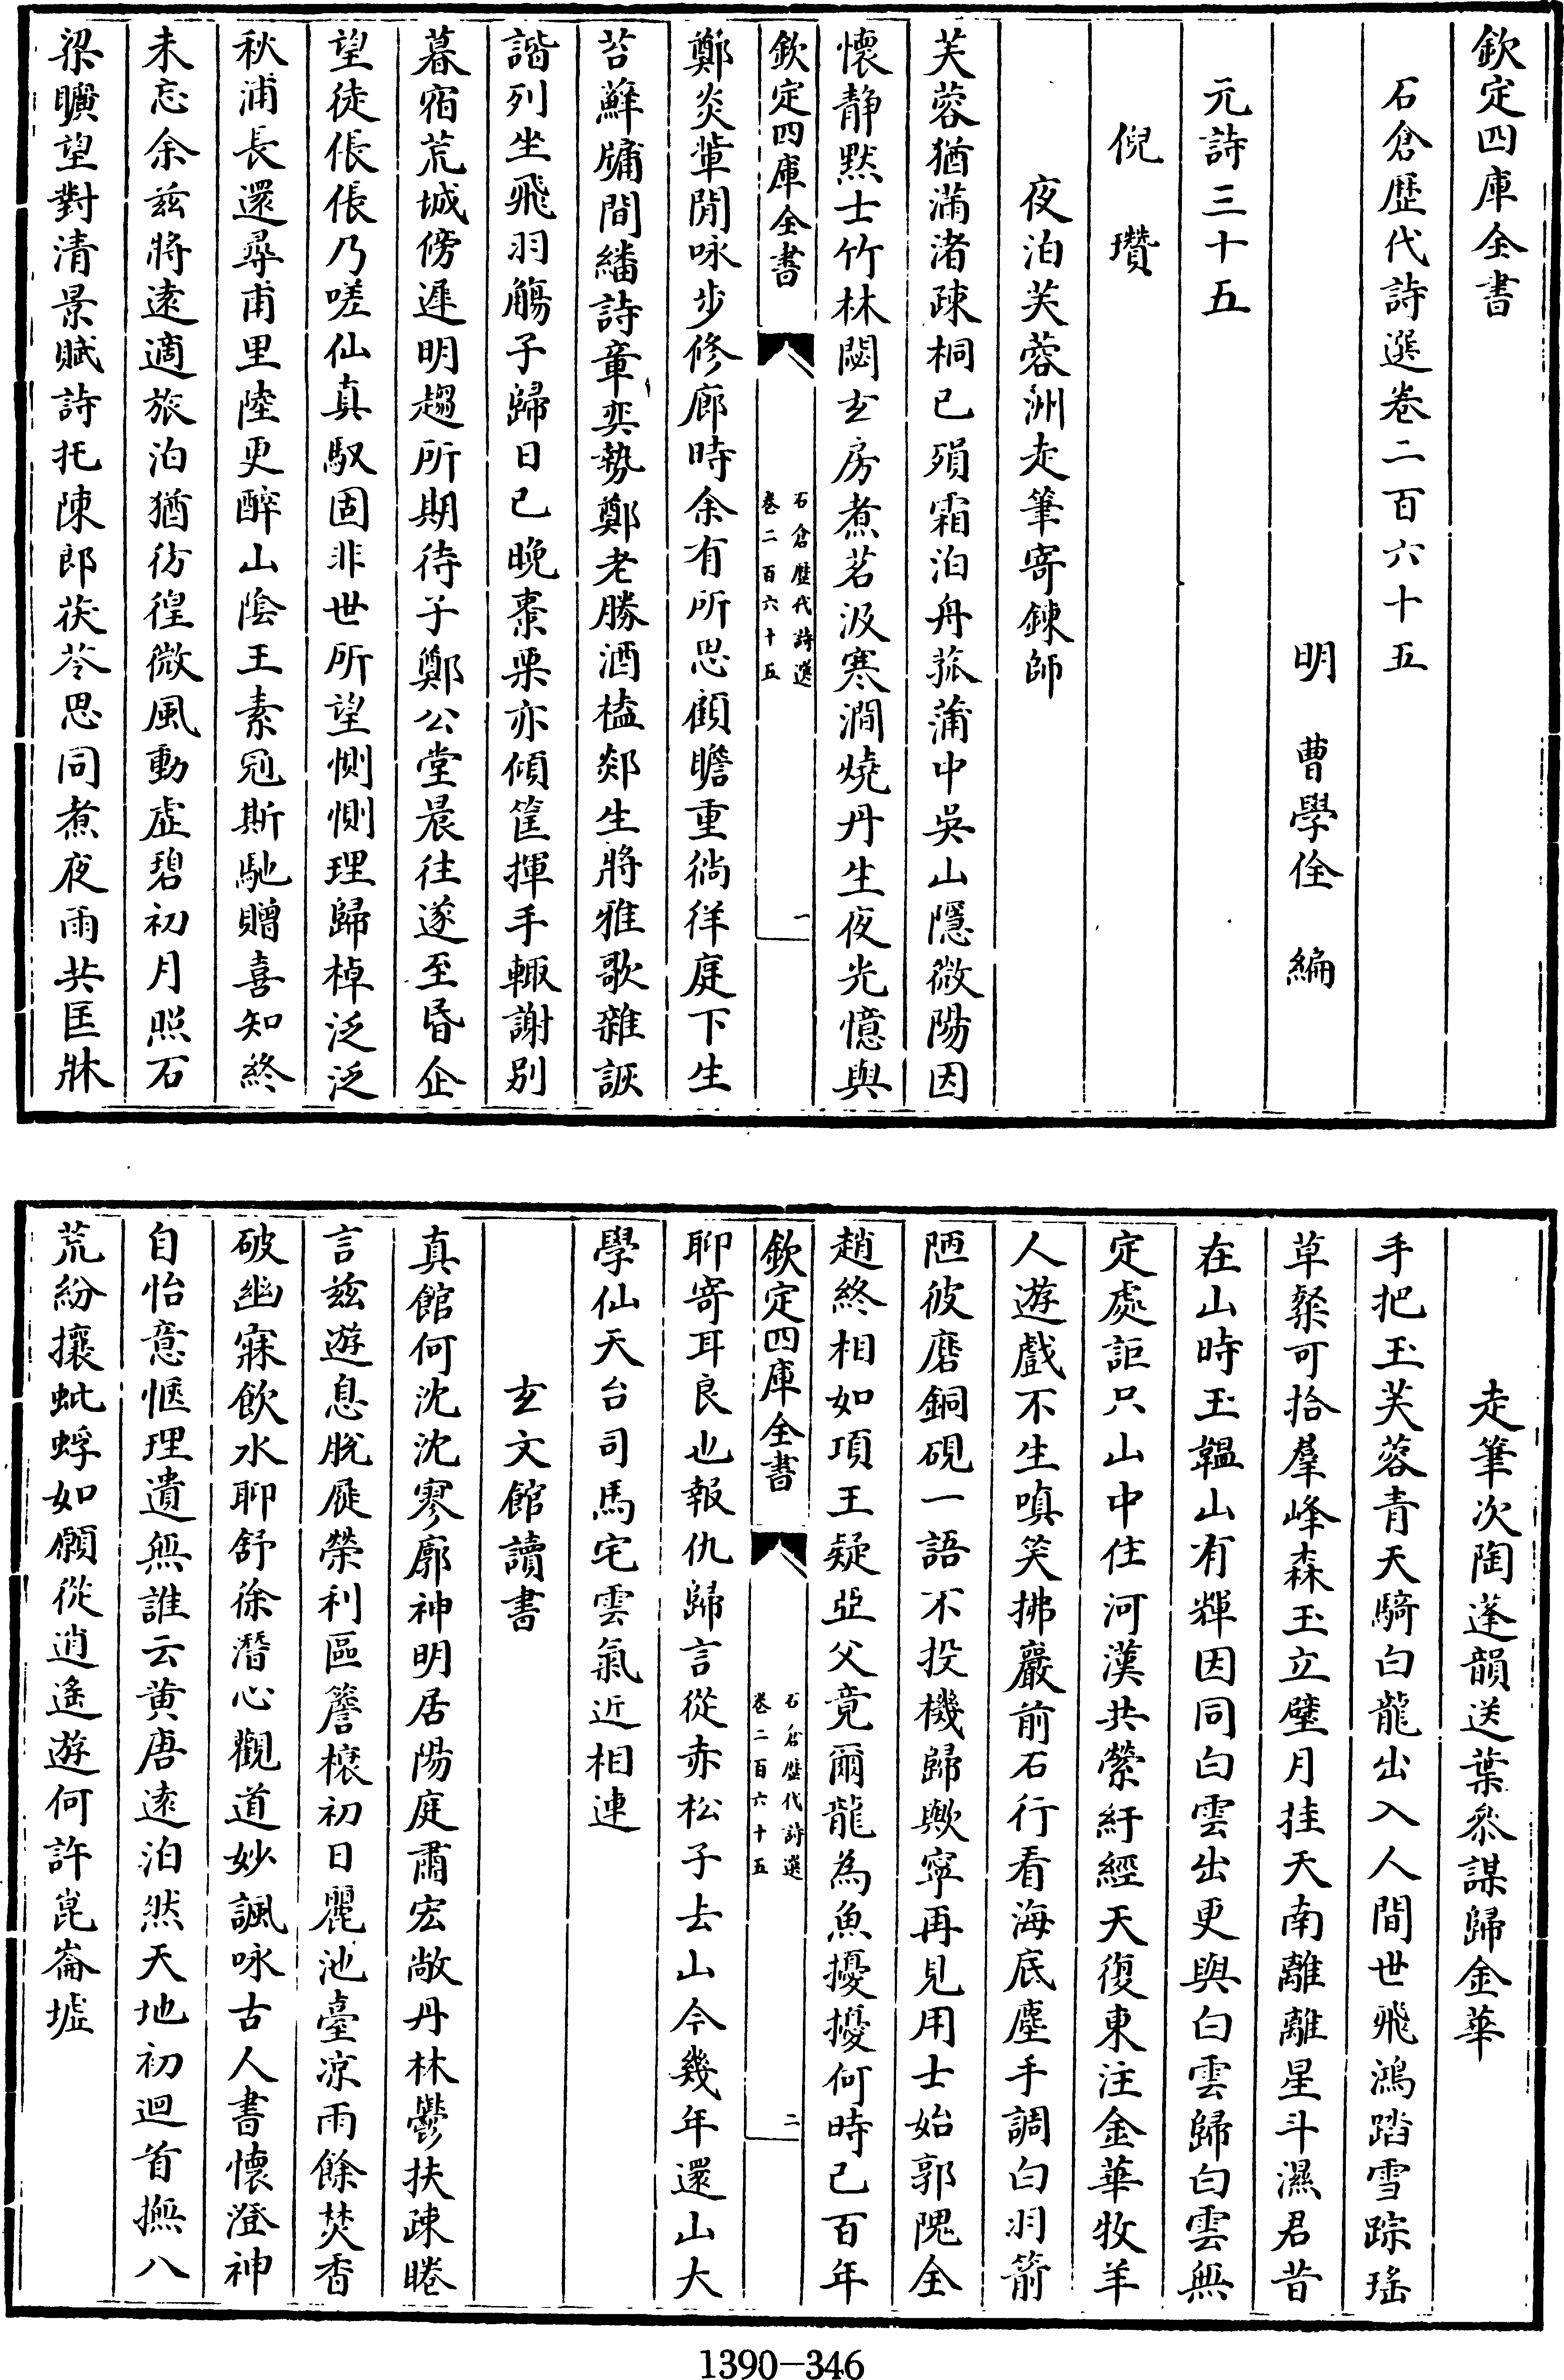 欽定四庫全書
石倉歷代詩選卷二百六十五
明 曹學佺 編
元詩三十五
倪瓚
夜泊芙蓉洲走筆寄鍊師
芙蓉猶滿渚疎桐已殞霜泊舟菰蒲中吳山隱微陽因
懷静黙士竹林閟𤣥房煮茗汲寒澗燒丹生夜光憶與
欽定四庫全書
石倉歷代詩選
卷二百六十五
一
鄭炎輩閒咏步修廊時余有所思顧瞻重徜徉庭下生
苔蘚牗間繙詩章奕勢鄭老勝酒榼郯生將雅歌雜詼
諧列坐飛羽觴子歸日已晚棗栗亦傾筐揮手輒謝别
暮宿荒城傍遲明趨所期待子鄭公堂晨往遂至昏企
望徒倀倀乃嗟仙真馭固非世所望惻惻理歸棹泛泛
秋浦長還尋甫里陸更醉山陰王素寃斯馳贈喜知終
未忘余兹將逺適旅泊猶彷徨微風動虛碧初月照石
梁曠望對清景賦詩托陳郎茯苓思同煮夜雨共匡牀
走筆次陶蓬韻送葉叅謀歸金華
手把玉芙蓉青天騎白龍出入人間世飛鴻踏雪踪瑤
草粲可拾羣峰森玉立壁月挂天南離離星斗濕君昔
在山時玉韞山有輝因同白雲出更與白雲歸白雲無
定處詎只山中住河漢共縈紆經天復東注金華牧羊
人遊戲不生嗔笑拂巖前石行看海底塵手調白羽箭
陋彼磨銅硯一語不投機歸歟寧再見用士始郭隗全
趙終相如項王疑亞父竟爾龍為魚擾擾何時已百年
欽定四庫全書
石倉歷代詩選
卷二百六十五
二
聊寄耳良也報仇歸言從赤松子去山今幾年還山大
學仙天台司馬宅雲氣近相連
𤣥文館讀書
真館何沈沈寥廓神明居陽庭肅宏敞丹林鬱扶疎睠
言兹遊息脫屣榮利區簷榱初日麗池臺凉雨餘焚香
破幽寐飲水聊舒徐潛心觀道妙諷咏古人書懷澄神
自怡意愜理遺無誰云黄唐逺泊然天地初迴首撫八
荒紛攘蚍蜉如願從逍遙遊何許崑崙墟
1390-346